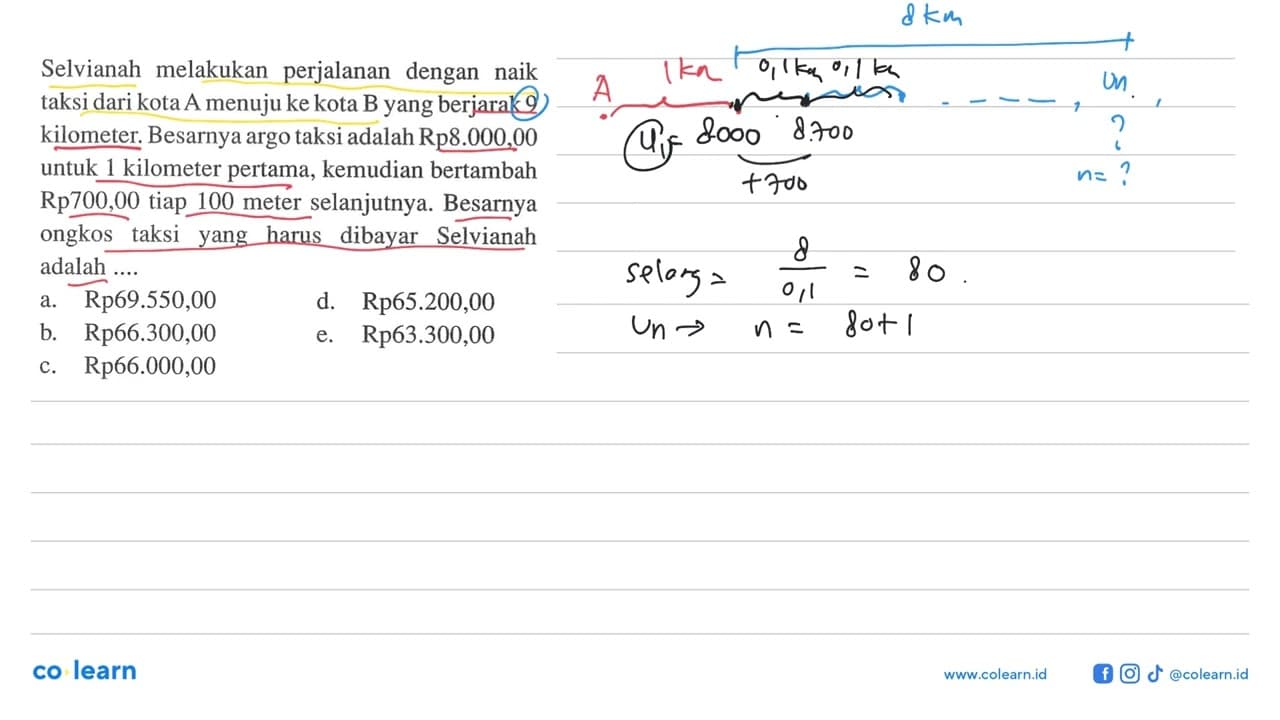 Selvianah melakukan perjalanan dengan naik
taksi dari kota A menuju ke kota B yang berjarak 9
kilometer. Besarnya argo taksi adalah Rp8.000,00
untuk 1 kilometer pertama, kemudian bertambah
Rp700,00 tiap 100 meter selanjutnya. Besarnya
ongkos taksi yang harus dibayar Selvianah
adalah ....
a. Rp69.550,00 d. Rp65.200,00
b. Rp66.300,00 e. Rp63.300,00
c. Rp66.000,00
8 km
A 1 km 0,1 km 0,1 km
Un
U1= 8.000 8.700 ?
+700 n= ?
8
selang = — = 80.
0,1
Un → n = 80+1
co learn
www.colearn.id @colearn.id